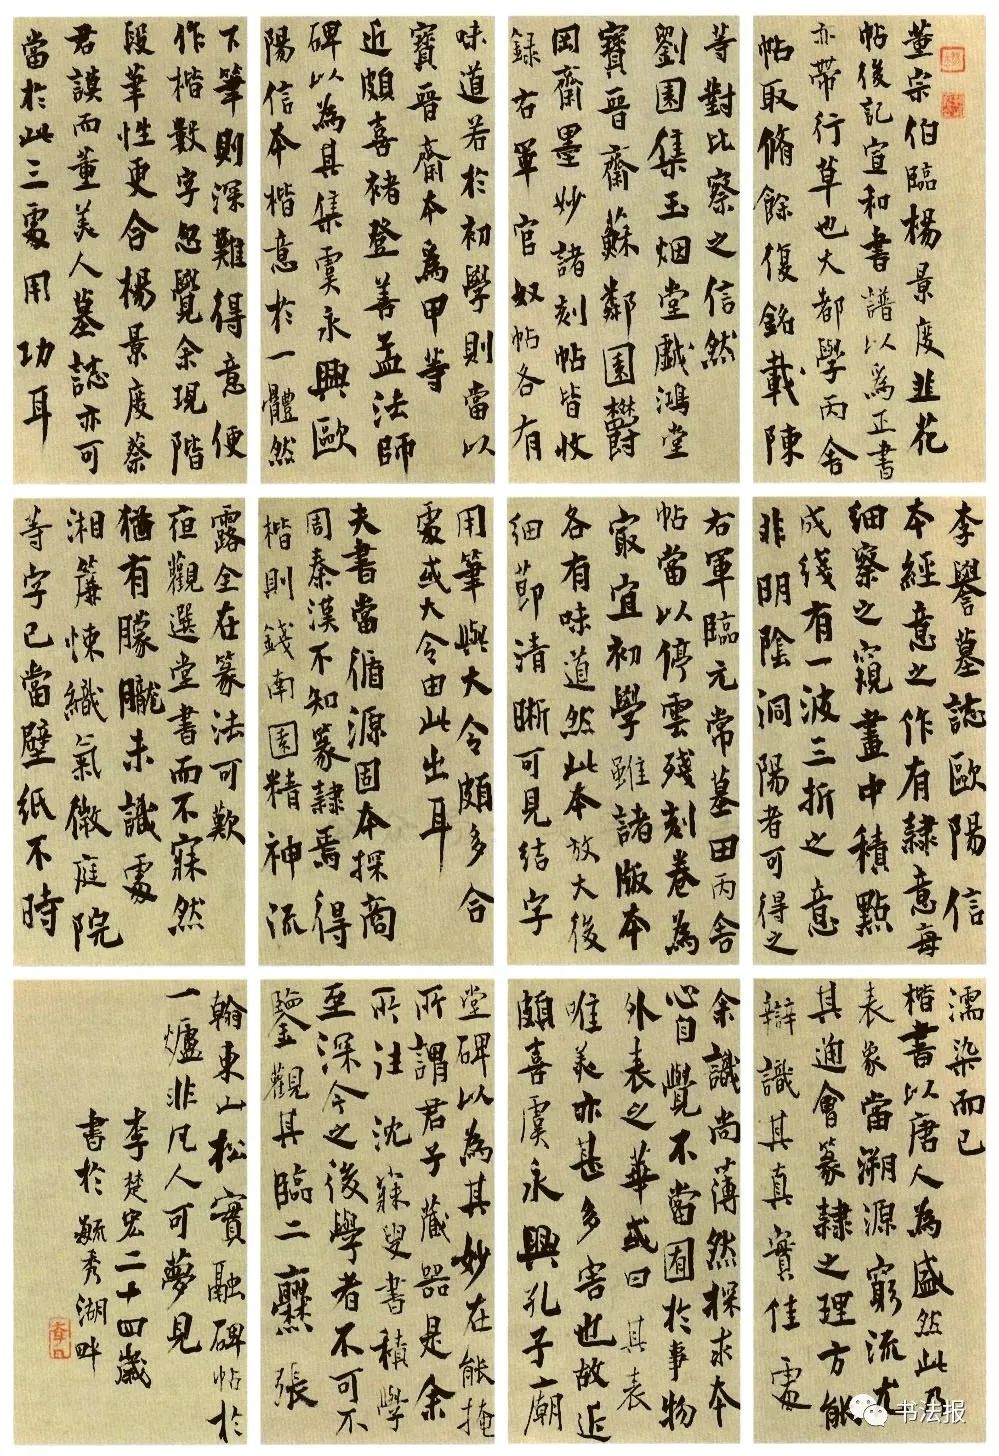 董宗伯臨楊景度韭花
帖後記宣和書譜以爲正書
亦帶行草也大都學丙舍
帖取脩餘復銘載陳
等對比察之信然
劉園集玉烟堂戲鴻堂
寶晉齋蘇鄰園欝
罔齋墨妙諸刻帖皆收
録右軍官奴帖各有
味道若於初學則當以
寶晉齋本爲甲等
近頗喜褚登善孟法師
碑以為其集虞永興歐
陽信本楷意於一體然
下筆則深難得意便
作楷數字忽覺余現階
段筆性更合楊景度蔡
君謨而董美人墓誌亦可
當於此三處用功耳
李譽墓誌歐陽信
本經意之作有隸意每
細察之窺畫中積點
成綫有一波三折之意
非明陰洞陽者可得之
右軍臨元常墓田丙舍
帖當以停雲殘刻卷為
㝡宜初學雖諸版本
各有味道然此本放大後
细節清晰可見结字
用筆與大令頗多合
處或大令由此出耳
夫書當循源固本探商
周秦漢不知篆隸焉得
楷則錢南園精神流
露全在篆法可歎
夜觀選堂書而不寐然
猶有朦朧未識處
湘簾悚織氣微庭院
等字已當壁紙不時
濡染而已
楷書以唐人為盛然此乃
表象當溯源窮流尤
其通會篆隸之理方能
辯識其真實佳處
余識尚薄然探求本
心自覺不當囿於事物
外表之華或曰其表
唯美亦甚多害也故近
頗喜虞永興孔子廟
堂碑以為其妙在能掩
所謂君子藏器是余
所注沈寐叟書積學
至深今之後學者不可不
鑒觀其臨二爨張
翰東山松實融碑帖於
一爐非凡人可夢見
李楚宏二十四歲
書於毓秀湖畔
书法报